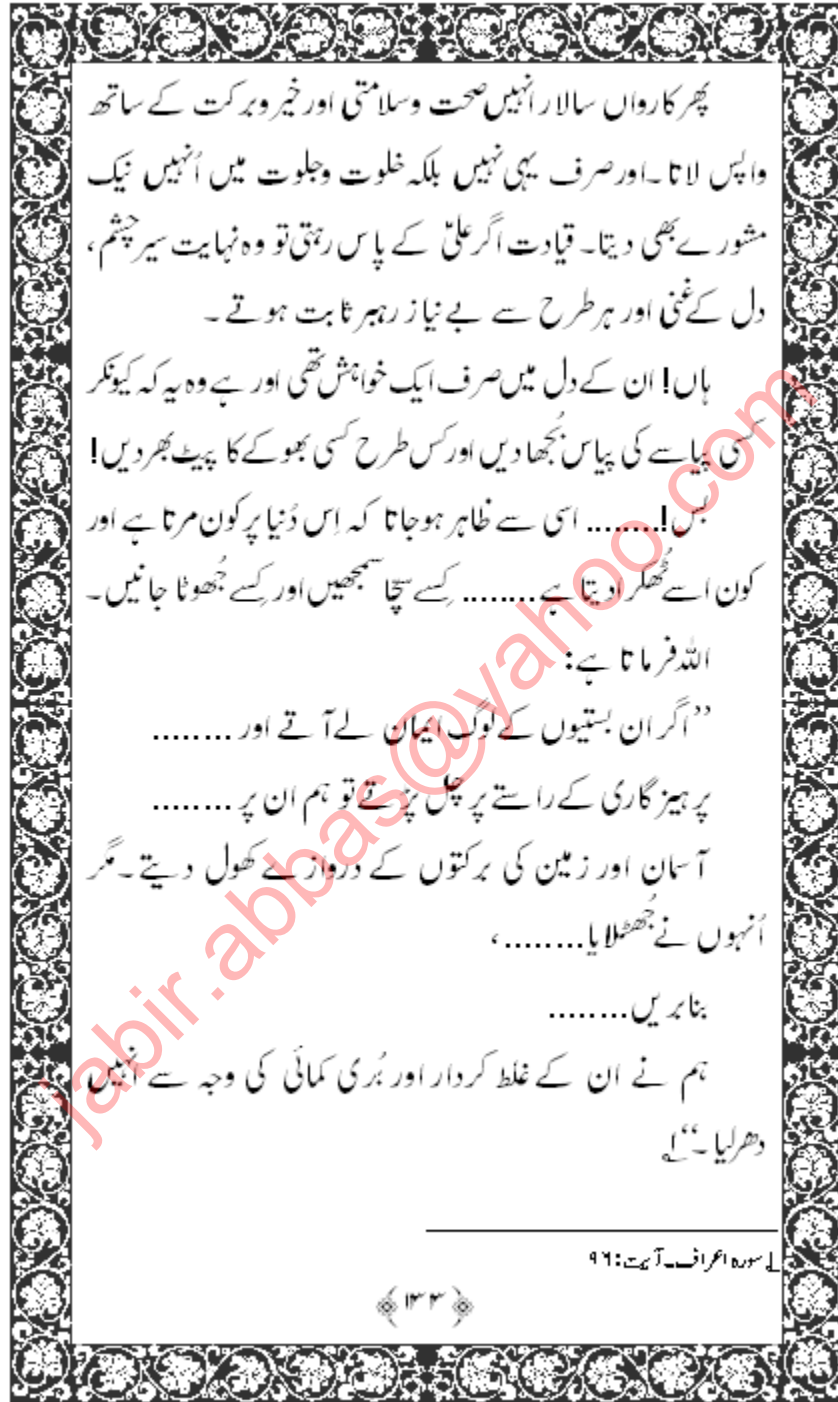 پھر کارواں سالار انہیں صحت وسلامتی اور خیر وبرکت کے ساتھ
واپس لاتا۔اور صرف یہی نہیں بلکہ خلوت وجلوت میں اُنہیں نیک
مشورے بھی دیتا۔ قیادت اگر علیؑ کے پاس رہتی تو وہ نہایت سیر چشم،
دل کے غنی اور ہر طرح سے بے نیاز رہبر ثابت ہوتے ۔
ہاں! ان کے دل میں صرف ایک خواہش تھی اور ہے وہ یہ کہ کیونکر
کسی پیاسے کی پیاس بُجھا دیں اور کس طرح کسی بھوکے کا پیٹ بھر دیں!
بس!........ اسی سے ظاہر ہوجاتا کہ اِس دُنیا پر کون مرتا ہے اور
کون اسے ٹُھکرا دیتا ہے........ کِسے سچّا سمجھیں اور کِسے جُھوٹا جانیں۔
اللہ فرماتا ہے:
”اگر ان بستیوں کے لوگ ایمان لے آتے اور ........
پرہیز گاری کے راستے پر چل پڑتے تو ہم ان پر ........
آسمان اور زمین کی برکتوں کے دروازے کھول دیتے۔مگر
اُنہوں نے جُھٹلایا........،
بنابریں........
ہم نے ان کے غلط کردار اور بُری کمائی کی وجہ سے اُنہیں
دھرلیا۔“ ۱
۱ سورہ اعراف۔آیت:۹۶
﴿۱۳۳﴾
jabir.abbas@yahoo.com